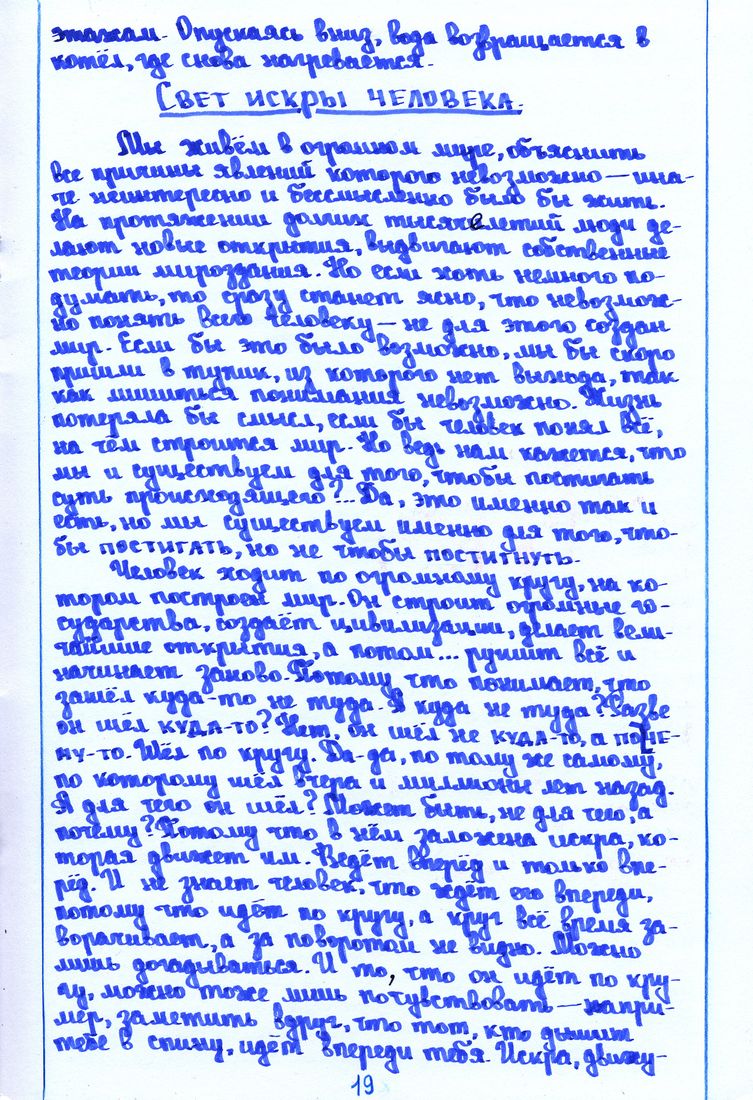 этажам. Опускаясь вниз, вода возвращается в
котёл, где снова нагревается.
СВЕТ ИСКРЫ ЧЕЛОВЕКА.
Мы живём в огромном мире, объяснить
все причины явлений которого невозможно — ина-
че неинтересно и бессмысленно было бы жить.
На протяжении долгих тысячелетий люди де-
лают новые открытия, выдвигают собственные
теории мироздания. Но если хоть немного по-
думать, то сразу станет ясно, что невозмож-
но понять всего человеку — не для этого создан
мир. Если бы это было возможно, мы бы скоро
пришли в тупик, из которого нет выхода, так
как лишиться понимания невозможно. Жизнь
потеряла бы смысл, если бы человек понял всё,
на чём строится мир. Но ведь нам кажется, что
мы и существуем для того, чтобы постигать
суть происходящего?... Да, это именно так и
есть, но мы существуем именно для того, что-
бы ПОСТИГАТЬ, но не чтобы ПОСТИГНУТЬ.
Человек ходит по огромному кругу, на ко-
тором построен мир. Он строит огромные го-
сударства, создаёт цивилизации, делает вели-
чайшие открытия, а потом... рушит всё и
начинает заново. Потому что понимает, что
зашёл куда-то не туда. А куда не туда? Разве
он шёл КУДА-ТО? Нет, он шёл не КУДА-ТО, а ПОЧЕ-
МУ-ТО. Шёл по кругу. Да-да, по тому же самому,
по которому шёл вчера и миллионы лет назад.
А для чего он шёл? Может быть, не для чего, а
почему? Потому что в нём заложена искра, ко-
торая движет им. Ведёт вперёд и только впе-
рёд. И не знает человек, что ждёт его впереди,
потому что идёт по кругу, а круг всё время за-
ворачивает, а за поворотом не видно. Можно
лишь догадываться. И то, что он идёт по кру-
гу, можно тоже лишь почувствовать — напри-
мер, заметить вдруг, что тот, кто дышит
тебе в спину, идёт впереди тебя. Искра, движу-
19